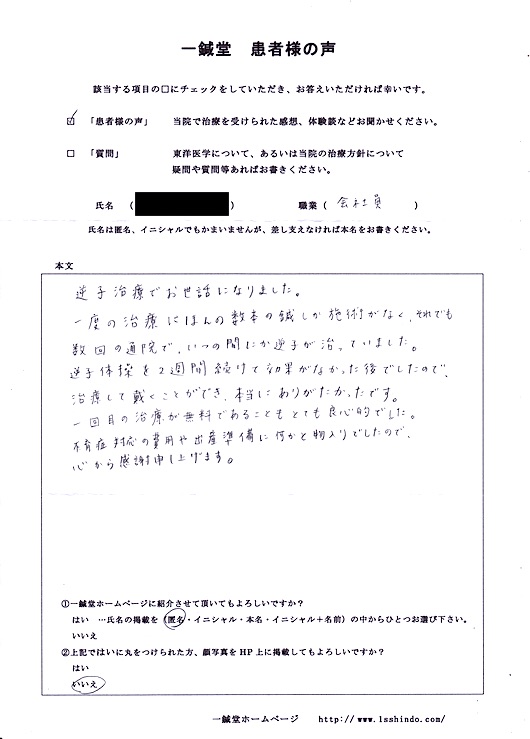 一鍼堂 患者様の声
該当する項目の□にチェックをしていただき、お答えいただければ幸いです。
☑ 「患者様の声」 当院で治療を受けられた感想、体験談などお聞かせください。
□ 「質問」 東洋医学について、あるいは当院の治療方針について
疑問や質問等あればお書きください。
氏名 ( ) 職業 ( 会社員 )
氏名は匿名、イニシャルでもかまいませんが、差し支えなければ本名をお書きください。
本文
逆子治療でお世話になりました。
一度の治療にほんの数本の鍼しか施術がなく、それでも
数回の通院で、いつの間にか逆子が治っていました。
逆子体操を2週間続けて効果がなかった後でしたので、
治療して戴くことができ、本当にありがたかったです。
一回目の治療が無料であることもとても良心的でした。
不育症対応の費用や出産準備に何かと物入りでしたので、
心から感謝申し上げます。
①一鍼堂ホームページに紹介させて頂いてもよろしいですか?
はい …氏名の掲載を (匿名・イニシャル・本名・イニシャル+名前) の中からひとつお選び下さい。
いいえ
②上記ではいに丸をつけられた方、顔写真をHP上に掲載してもよろしいですか?
はい
いいえ
一鍼堂ホームページ http://www.1sshindo.com/